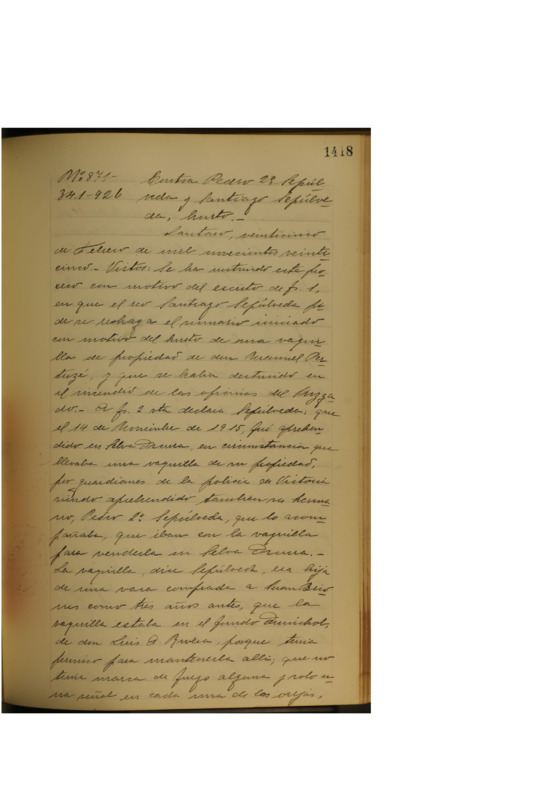 1418
Nº 871-
341-926
Contra Pedro 2º Sepúl
veda y Santiago Sepúlve
da, hurto.-
Santiago, veinticinco
de Febrero de mil novecientos veinti
cinco.- Vistos: Se ha instruido este pro
ceso con motivo del escrito de fs. 1,
en que el reo Santiago Sepúlveda pi
de se rehaga el sumario iniciado
con motivo del hurto de una vaqui
lla de propiedad de don Manuel
y que se había destruido en
el incendio de las oficinas del Juzga
do.- A fs. 2 vta declara Sepúlveda, que
el 14 de Noviembre de 1915, fué aprehen
dido en Selva Oscura, en circunstancia que
llevaba una vaquilla de su propiedad,
por guardianes de la policía de Victoria
siendo aprehendido tambien su herma
no, Pedro 2º Sepúlveda, que lo acom
pañaba, que iban con la vaquilla
para venderla en Selva Oscura.-
La vaquilla, dice Sepúlveda, era hija
de una vaca comprada a Juan Brio
nes como tres años antes, que la
vaquilla estaba en el fundo
de don Luis A. Rivera, porque tenia
permiso para mantenerla allí; que no
tenia marca de fuego alguna y solo u
na señal en cada una de las orejas,